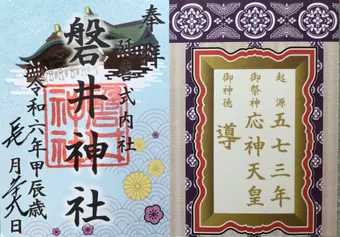 奉拝
延喜式内社
磐井神社
令和六年甲辰歳
長月廿八日
起源 五七三年
御祭神 応神天皇
御神徳 導